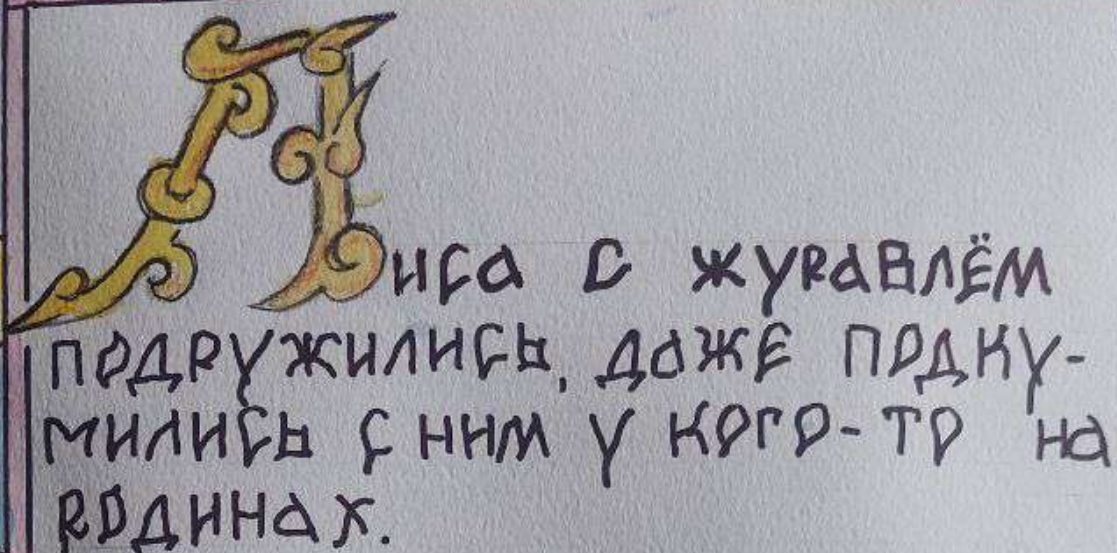 Лиса с журавлём
подружились, даже подку-
мились с ним у кого-то на
родинах.